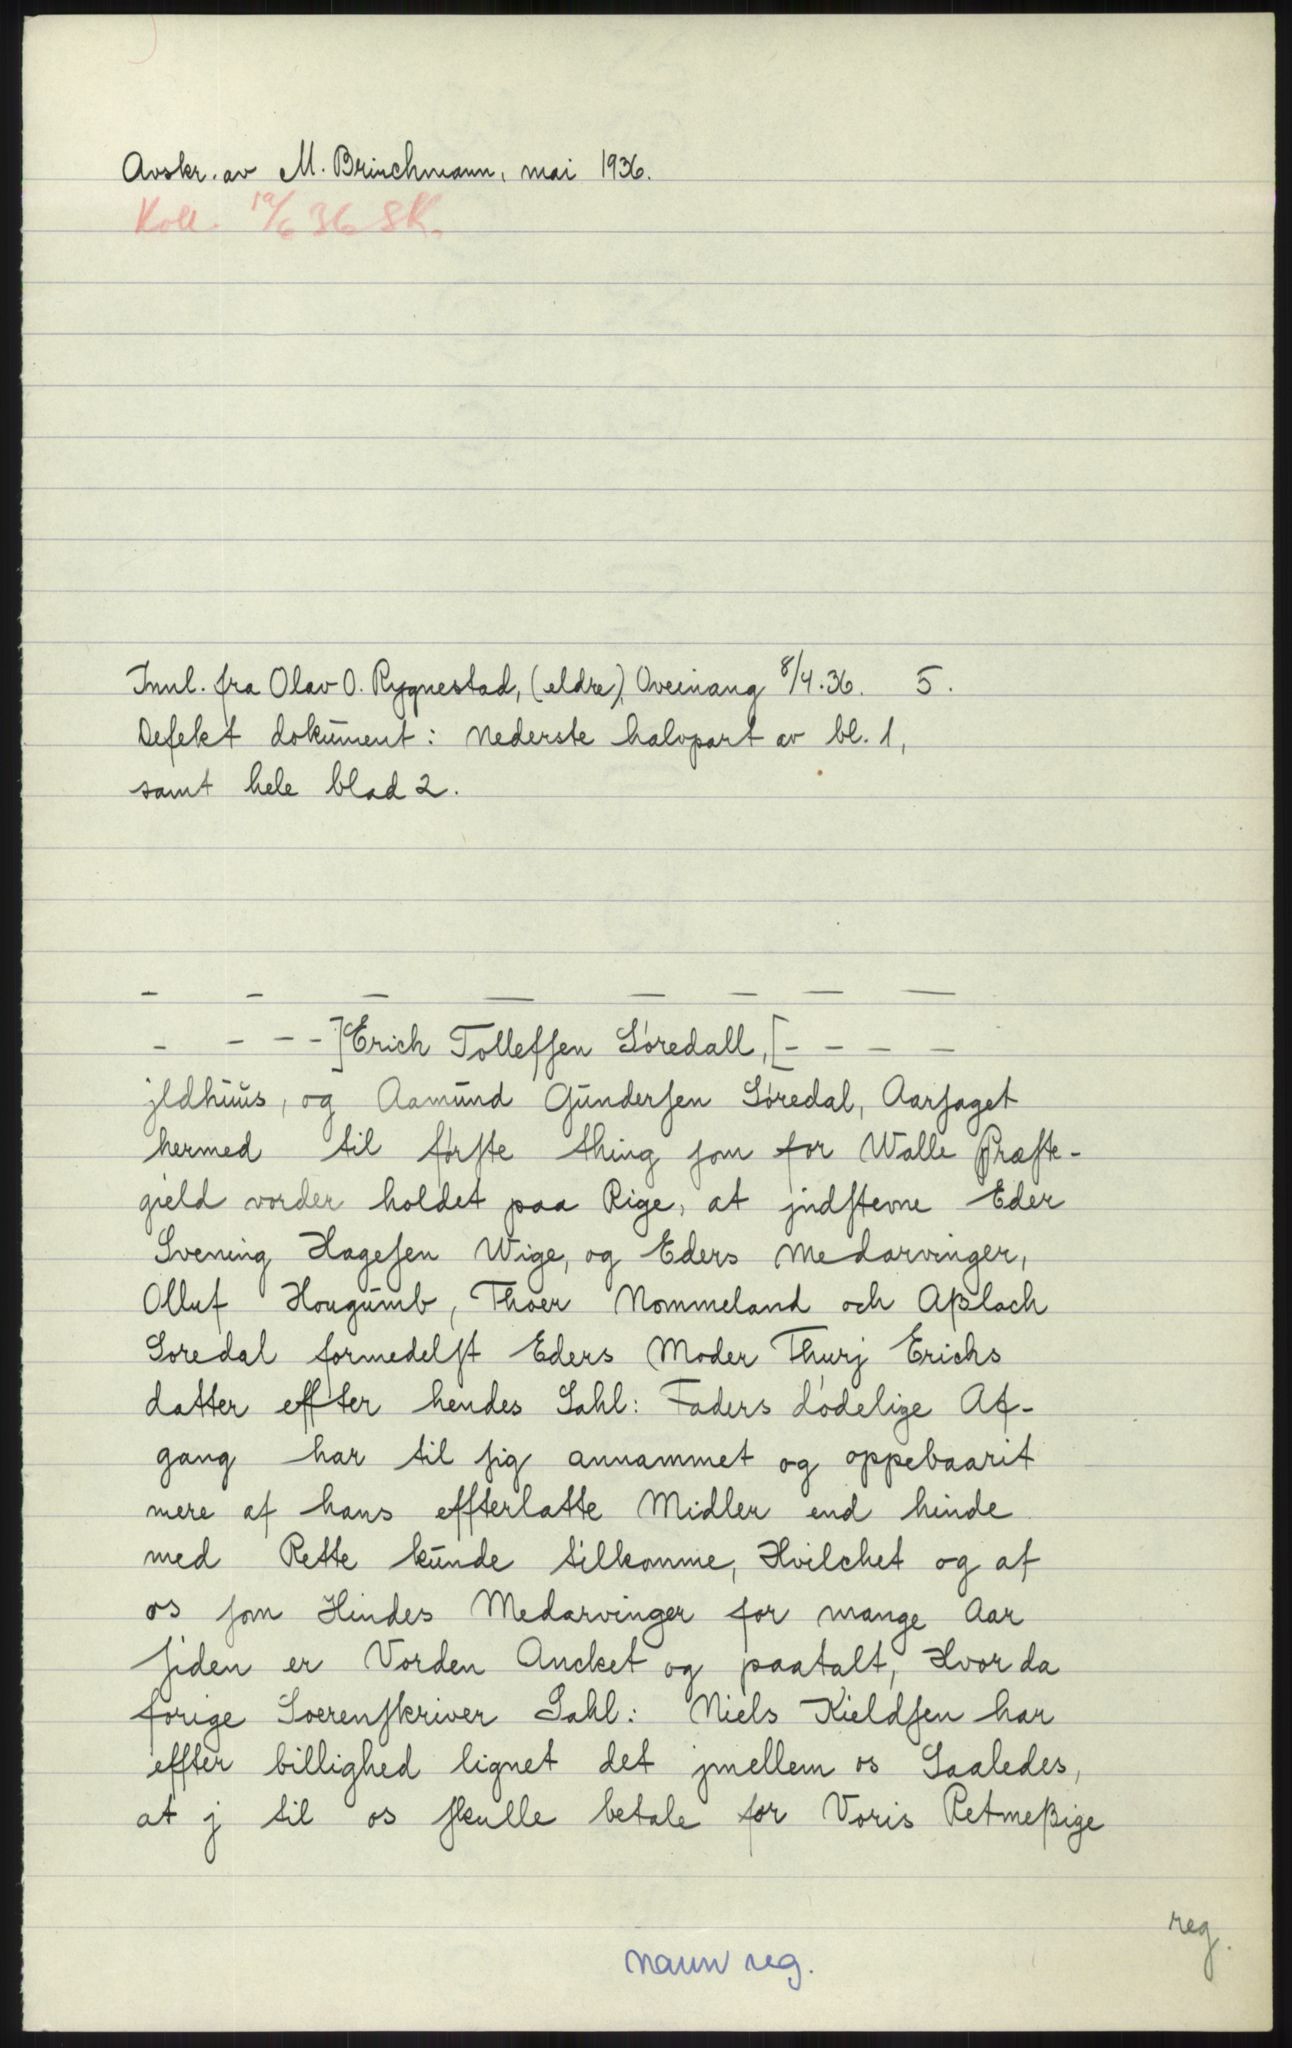 Avskr. av M. Brinchmann, mai 1936.
Koll. 19/6 36 SK.
Innl. fra Olav O. Rygnestad, (eldre), Oveinang 8/4.36. 5.
Defekt dokument: Nederste halvpart av bl. 1,
samt hele blad 2.
- - - - - - - -
- - - -]Erich Tollefsen Søredall,[- - - -
jldhuus, og Aamund Gundersen Søredal, Aarsaget
hermed til første thing som for Walle Præste-
gield vorder holdet paa Rige, at jndstevne Eder
Svening Hagesen Wige, og Eders Medarvinger,
Olluf Hougumb, Thoer Nommeland och Aßlach
Soredal formedelst Eders Moder Thurj Erichs
datter effter hendes Sahl: Faders dødelige Af-
gang har til sig annammet og oppebaarit
mere af hans effterlatte Midler end hinde
med Rette kunde tilkomme, Hvilchet og af
os som Hindes Medarvinger for mange Aar
siden er Vorden Ancket og paatalt, Hvor da
forige Soerenskriver Sahl: Niels Kieldsen har
effter billighed lignet det jmellem os Saaledes,
at j til os skulle betale for Voris Retmeßige
reg.
navn reg.